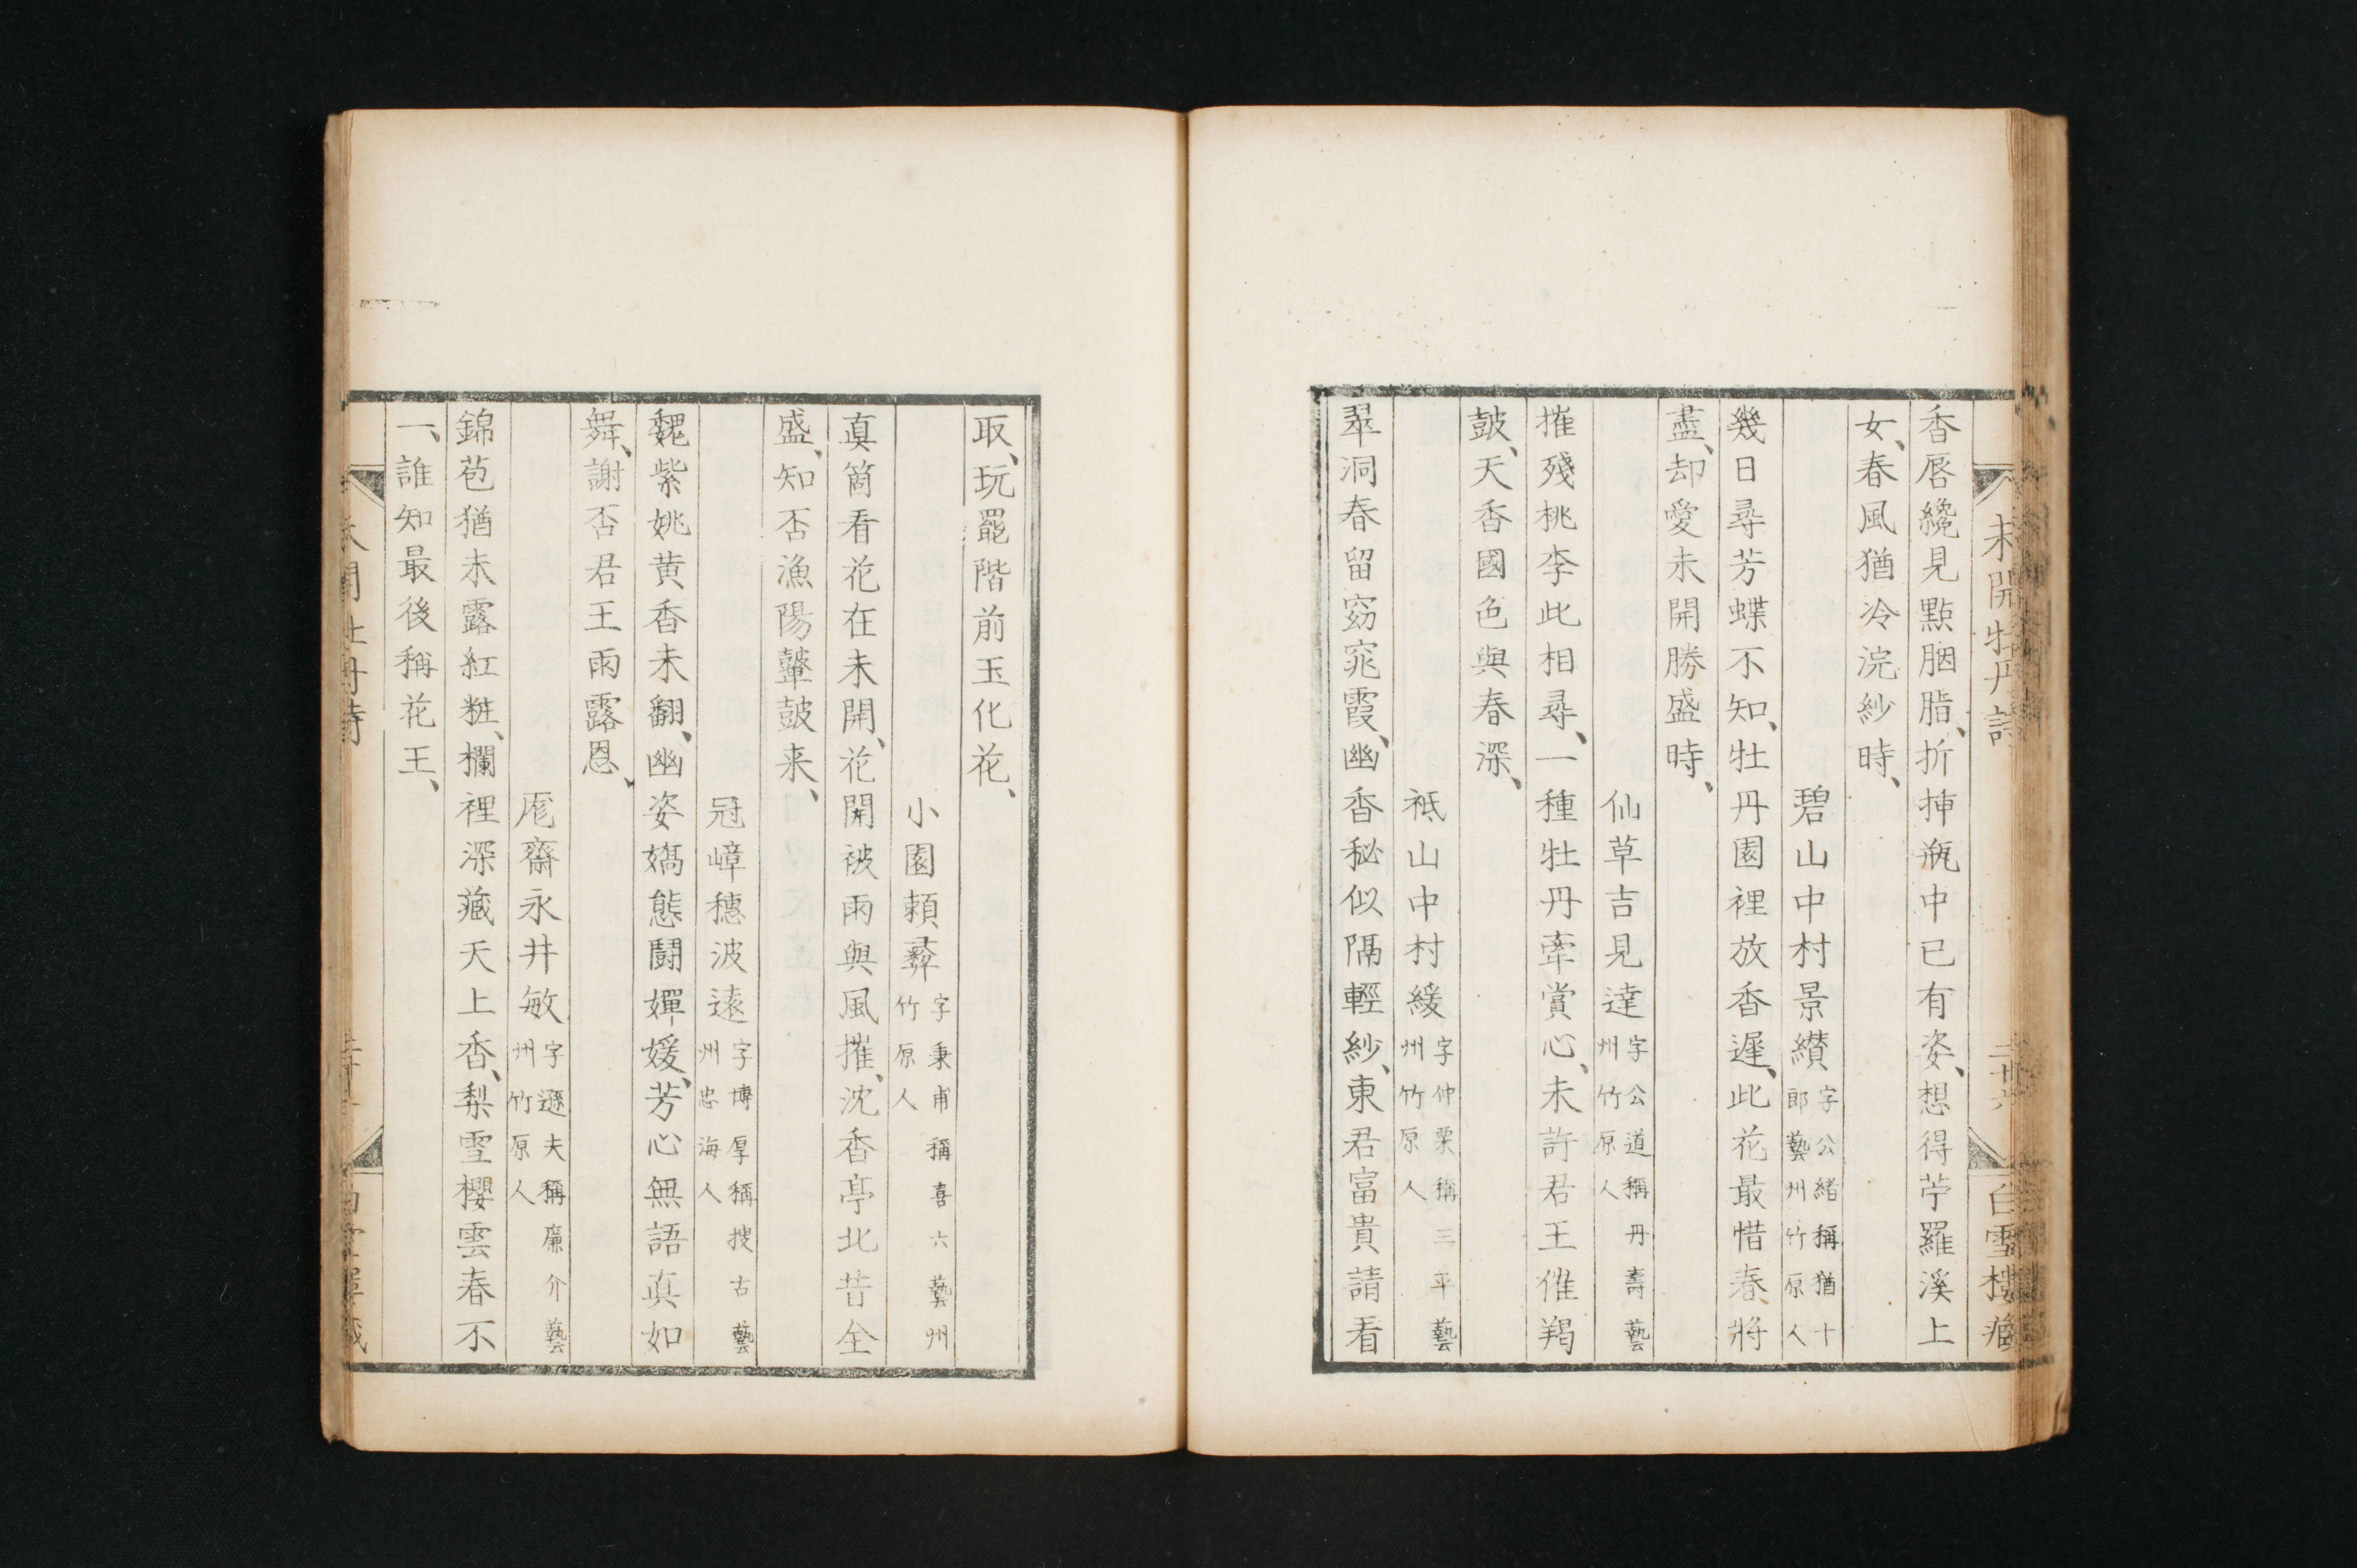 未開牡丹詩 二十六 白雪樓藏
香唇纔見點胭脂、折挿瓶中已有姿、想得苧羅溪上
女、春風猶冷浣紗時、
碧山中村景纘 字公緒稱猶十郎藝州竹原人
幾日尋芳蝶不知、牡丹園裡放香遲、此花最惜春將
盡、却愛未開勝盛時、
仙草吉見達 字公道稱丹壽藝州竹原人
摧殘桃李此相尋、一種牡丹牽賞心、未許君王催羯
鼓、天香國色與春深、
祗山中村緩 字仲栗稱三平藝州竹原人
翠洞春留窈窕霞、幽香秘似隔輕紗、東君富貴請看
取、玩罷階前玉化花、
小園賴彛 字秉甫稱喜六藝州竹原人
真箇看花在未開、花開被雨與風摧、沈香亭北昔全
盛、知否漁陽鼙鼓来、
冠嶂穗波遠 字博厚稱搜古藝州忠海人
魏紫姚黄香未翻、幽姿嬌態鬪嬋媛、芳心無語真如
舞、謝否君王雨露恩、
庬齋永井敏 字遜夫稱廉介藝州竹原人
錦苞猶未露紅粧、欄裡深藏天上香、梨雪櫻雲春不
一、誰知最後稱花王、
未開牡丹詩